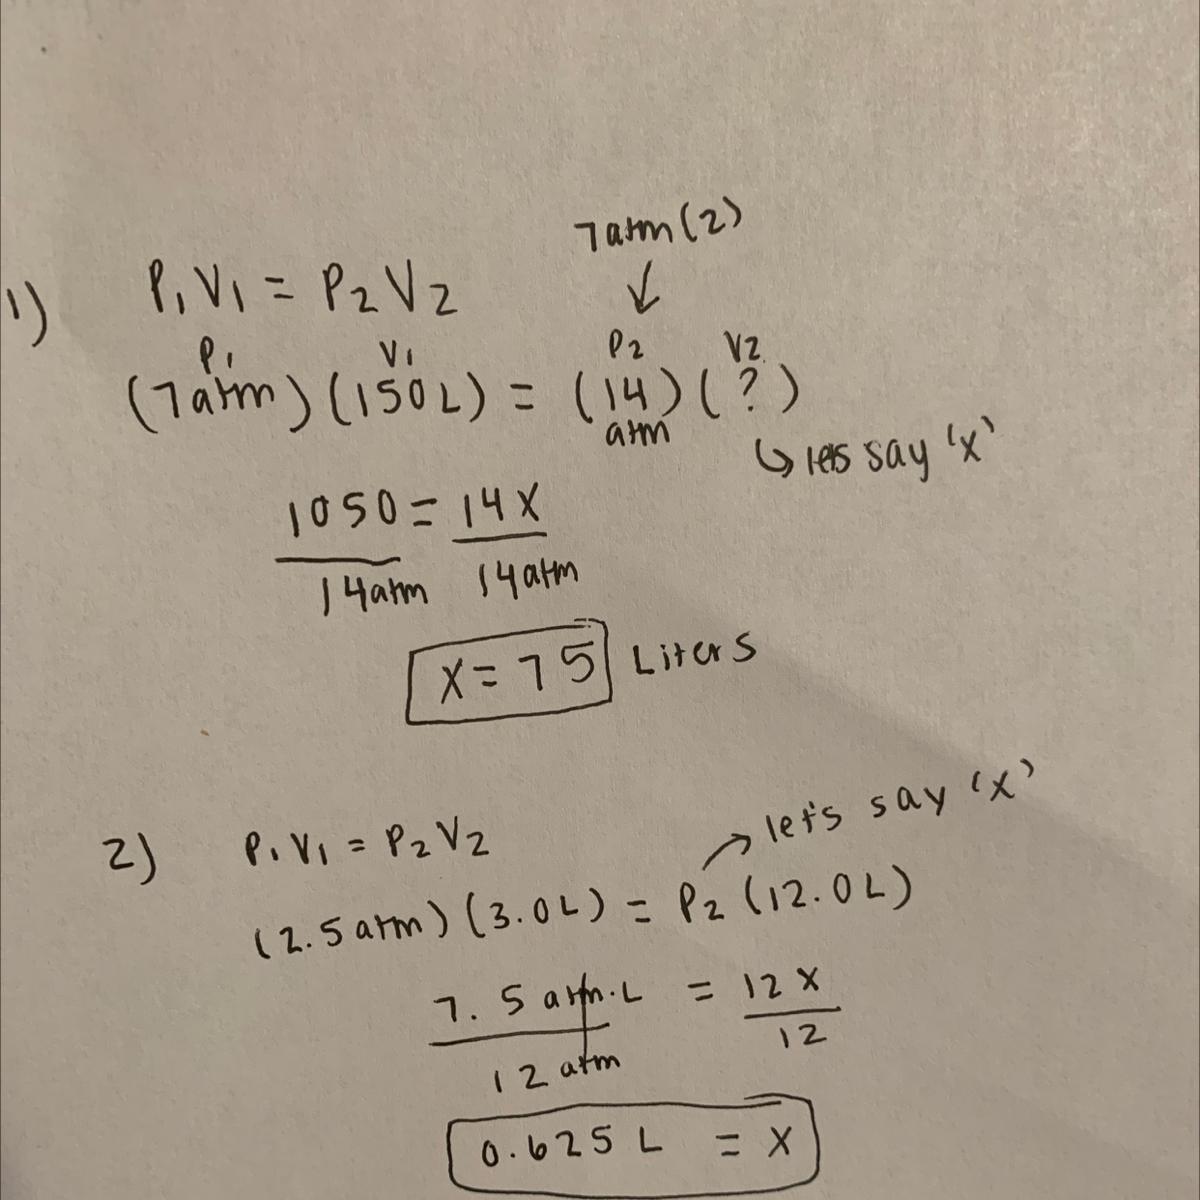 7atm(2)
1) P₁V₁ = P₂V₂
P₁ V₁ P₂ V₂
(7atm)(150L) = (14)(?)
atm
↳ lets say 'x'
1050 = 14x
14atm 14atm
x = 75 Liters
2) P₁V₁ = P₂V₂ → let's say 'x'
(2.5atm)(3.0L) = P₂(12.0L)
7.5 atm·L = 12x
12 atm 12
0.625 L = x